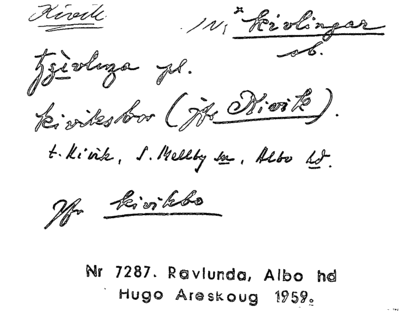 Kivik
*kivlingar
sb.
pl.
kiviksbor (jfr Kivik).
t. Kivik, S. Mellby sn, Albo hd.
Jfr kivikbo
Nr 7287. Ravlunda, Albo hd
Hugo Areskoug 1959.